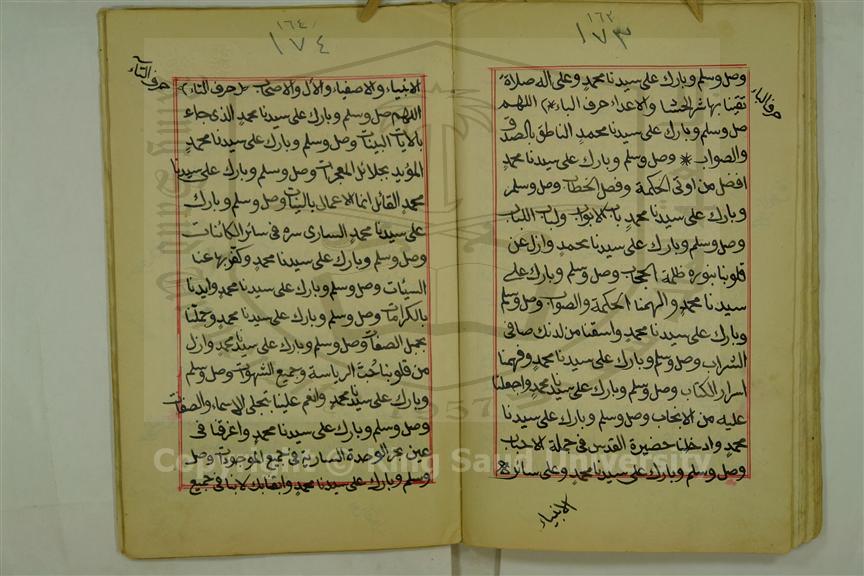 ١٦٢
١٧٣
حرف الباء
وصل وسلم وبارك على سيدنا محمد وعلى اله صلاة
تقينا بها شر الحشا والاعداء حرف الباء * اللهم
صل وسلم وبارك على سيدنا محمد الناطق بالصدق
والصواب * وصل وسلم وبارك على سيدنا محمد
افضل من اوتى الحكمة وفصل الخطاب وصل وسلم
وبارك على سيدنا محمد باب الابواب ولباب اللباب
وصل وسلم وبارك على سيدنا محمد وازل عن
قلوبنا بنوره ظلمة الحجاب وصل وسلم وبارك على
سيدنا محمد والهمنا الحكمة والصواب وصل وسلم
وبارك على سيدنا محمد واسقنا من لدنك صافى
الشراب وصل وسلم وبارك على سيدنا محمد وفهمنا
اسرار الكتاب وصل وسلم وبارك على سيدنا محمد واجعلنا
عليه من الانجاب وصل وسلم وبارك على سيدنا
محمد وادخلنا حضيرة القدس فى جملة الاحباب
وصل وسلم وبارك على سيدنا محمد وعلى سائر
الانبياء
١٦٤
١٧٤
حرف التاء
الانبياء والاصفياء والأل والاصحاب (حرف التاء)
اللهم صل وسلم وبارك على سيدنا محمد الذى جاء
بالآيات البينات وصل وسلم وبارك على سيدنا محمد
المؤيد بجلائل المعجزات وصل وسلم وبارك على سيدنا
محمد القائل انما الاعمال بالنيات وصل وسلم وبارك
على سيدنا محمد السارى سره فى سائر الكائنات
وصل وسلم وبارك على سيدنا محمد وكفر بها عنا
السيئات وصل وسلم وبارك على سيدنا محمد وايدنا
بالكرامات وصل وسلم وبارك على سيدنا محمد وجملنا
بجميل الصفات وصل وسلم وبارك على سيدنا محمد وازل
من قلوبنا حب الرياسة وجميع الشهوات وصل وسلم
وبارك على سيدنا محمد وانعم علينا بتجلى الاسماء والصفات
وصل وسلم وبارك على سيدنا محمد واغرقنا فى
عين بحر الوحدة السارية فى جميع الموجودات وصل
وسلم وبارك على سيدنا محمد وابقنا بك لا بنا فى جميع
1957
Copyright © King Saud University